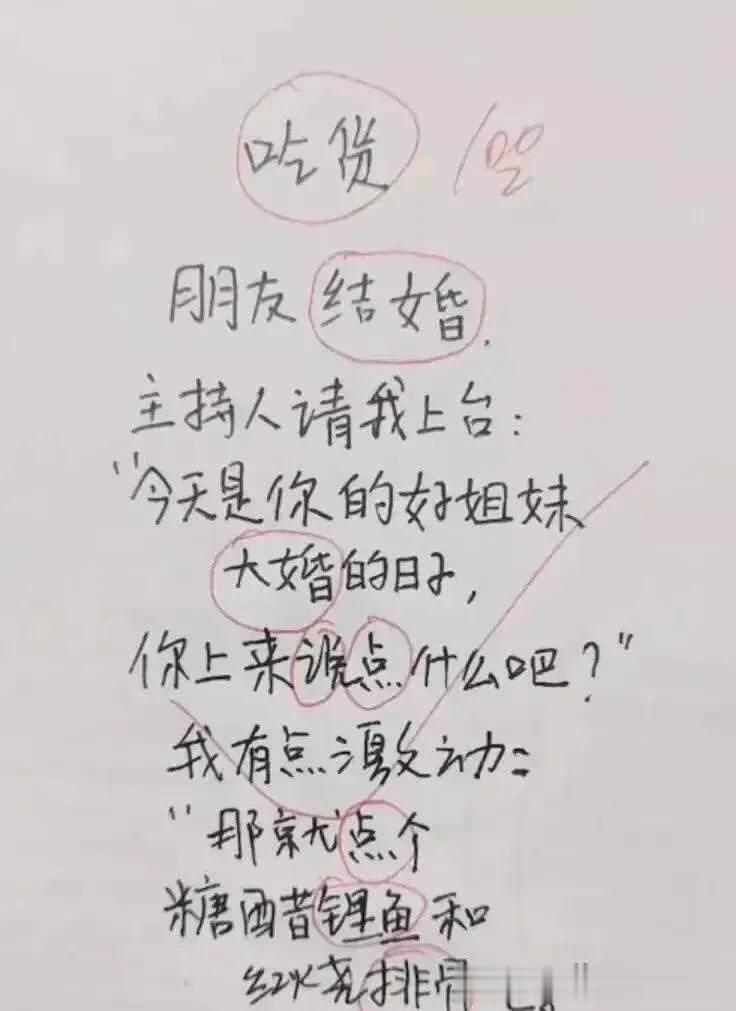 吃货
朋友结婚.
主持人请我上台：
“今天是你的好姐妹
大婚的日子，
你上来说点什么吧？”
我有点激动：
“那就点个
糖醋锂鱼和
红烧排骨